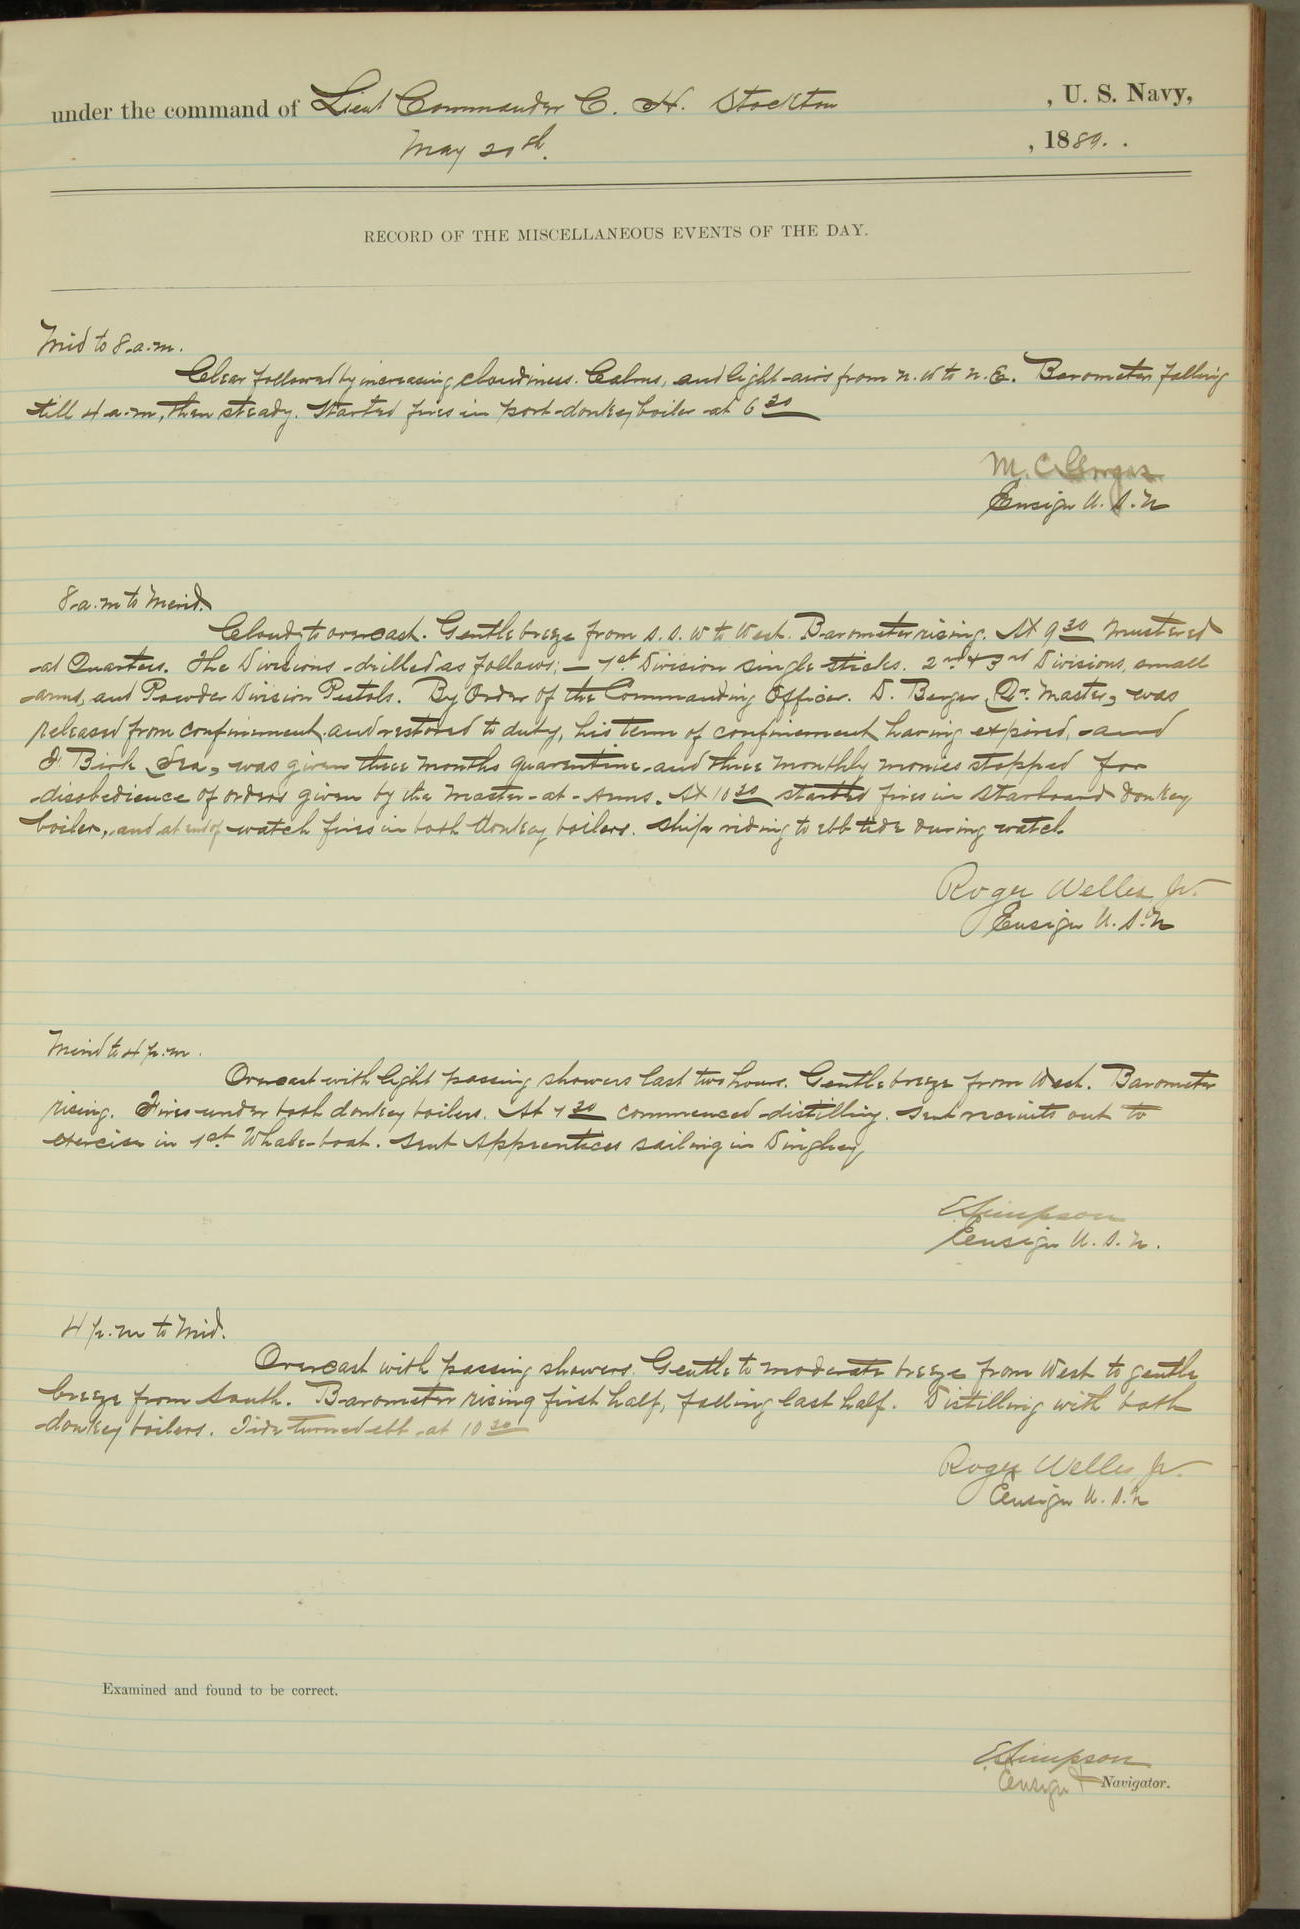 under the command of Lieut Commander C. H. Stockton, U. S. Navy,
May 20th, 1889.
RECORD OF THE MISCELLANEOUS EVENTS OF THE DAY.
Mid to 8 a.m.
Clear followed by increasing cloudiness. Calms, and light airs from N. W to N. E. Barometer falling
till 4 a.m, then steady. Started fires in port donkey boiler at 6 30
M. C. Gorgas
Ensign U. S. N
8 a.m to Merid.
Cloudy to overcast. Gentle breeze from S. S. W to West. Barometer rising. At 9 30 mustered
at Quarters. The Divisions drilled as follows; — 1st Division single sticks. 2nd & 3rd Divisions, small
arms, and Powder Division Pistols. By Order of the Commanding Officer. D. Berger, Qr. Master, was
released from confinement and restored to duty, his term of confinement having expired, and
F. Birk, Sea, was given three months quarentine and three monthly monies stopped for
disobedience of orders given by the Master-at-Arms. At 10 30 started fires in starboard donkey
boiler, and at end of watch fires in both donkey boilers. Ship riding to ebb tide during watch.
Roger Welles Jr.
Ensign U. S. N
Merid to 4 p.m.
Overcast with light passing showers last two hours. Gentle breeze from West. Barometer
rising. Fires under both donkey boilers. At 1 30 commenced distilling. Sent recruits out to
exercise in 1st Whale-boat. Sent Apprentices sailing in Dinghey
E. Simpson
Ensign U. S. N.
4 p.m to Mid.
Overcast with passing showers. Gentle to moderate breeze from West to gentle
breeze from South. Barometer rising first half, falling last half. Distilling with both
donkey boilers. Tide turned ebb at 10 30
Roger Welles Jr.
Ensign U. S. N
Examined and found to be correct.
E. Simpson
Ensign & Navigator.